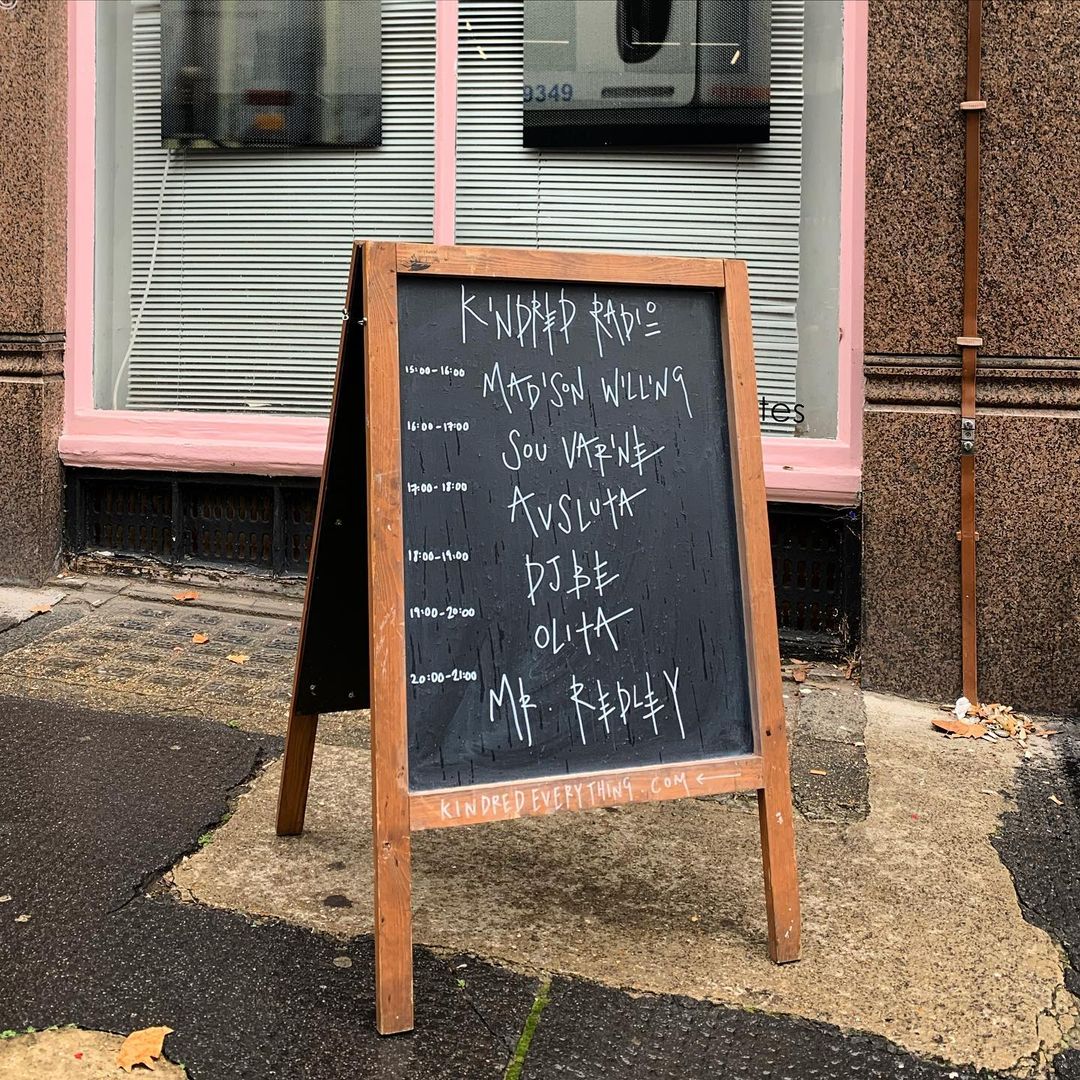 9349
KINDRED RADIO
15:00-16:00 MADISON WILLING
tes
16:00-17:00 SOU VARNE
17:00-18:00 AVSLUTA
18:00-19:00 DJ BE
19:00-20:00 OLITA
20:00-21:00 MR. REDLEY
KINDREDEVERYTHING.COM ←